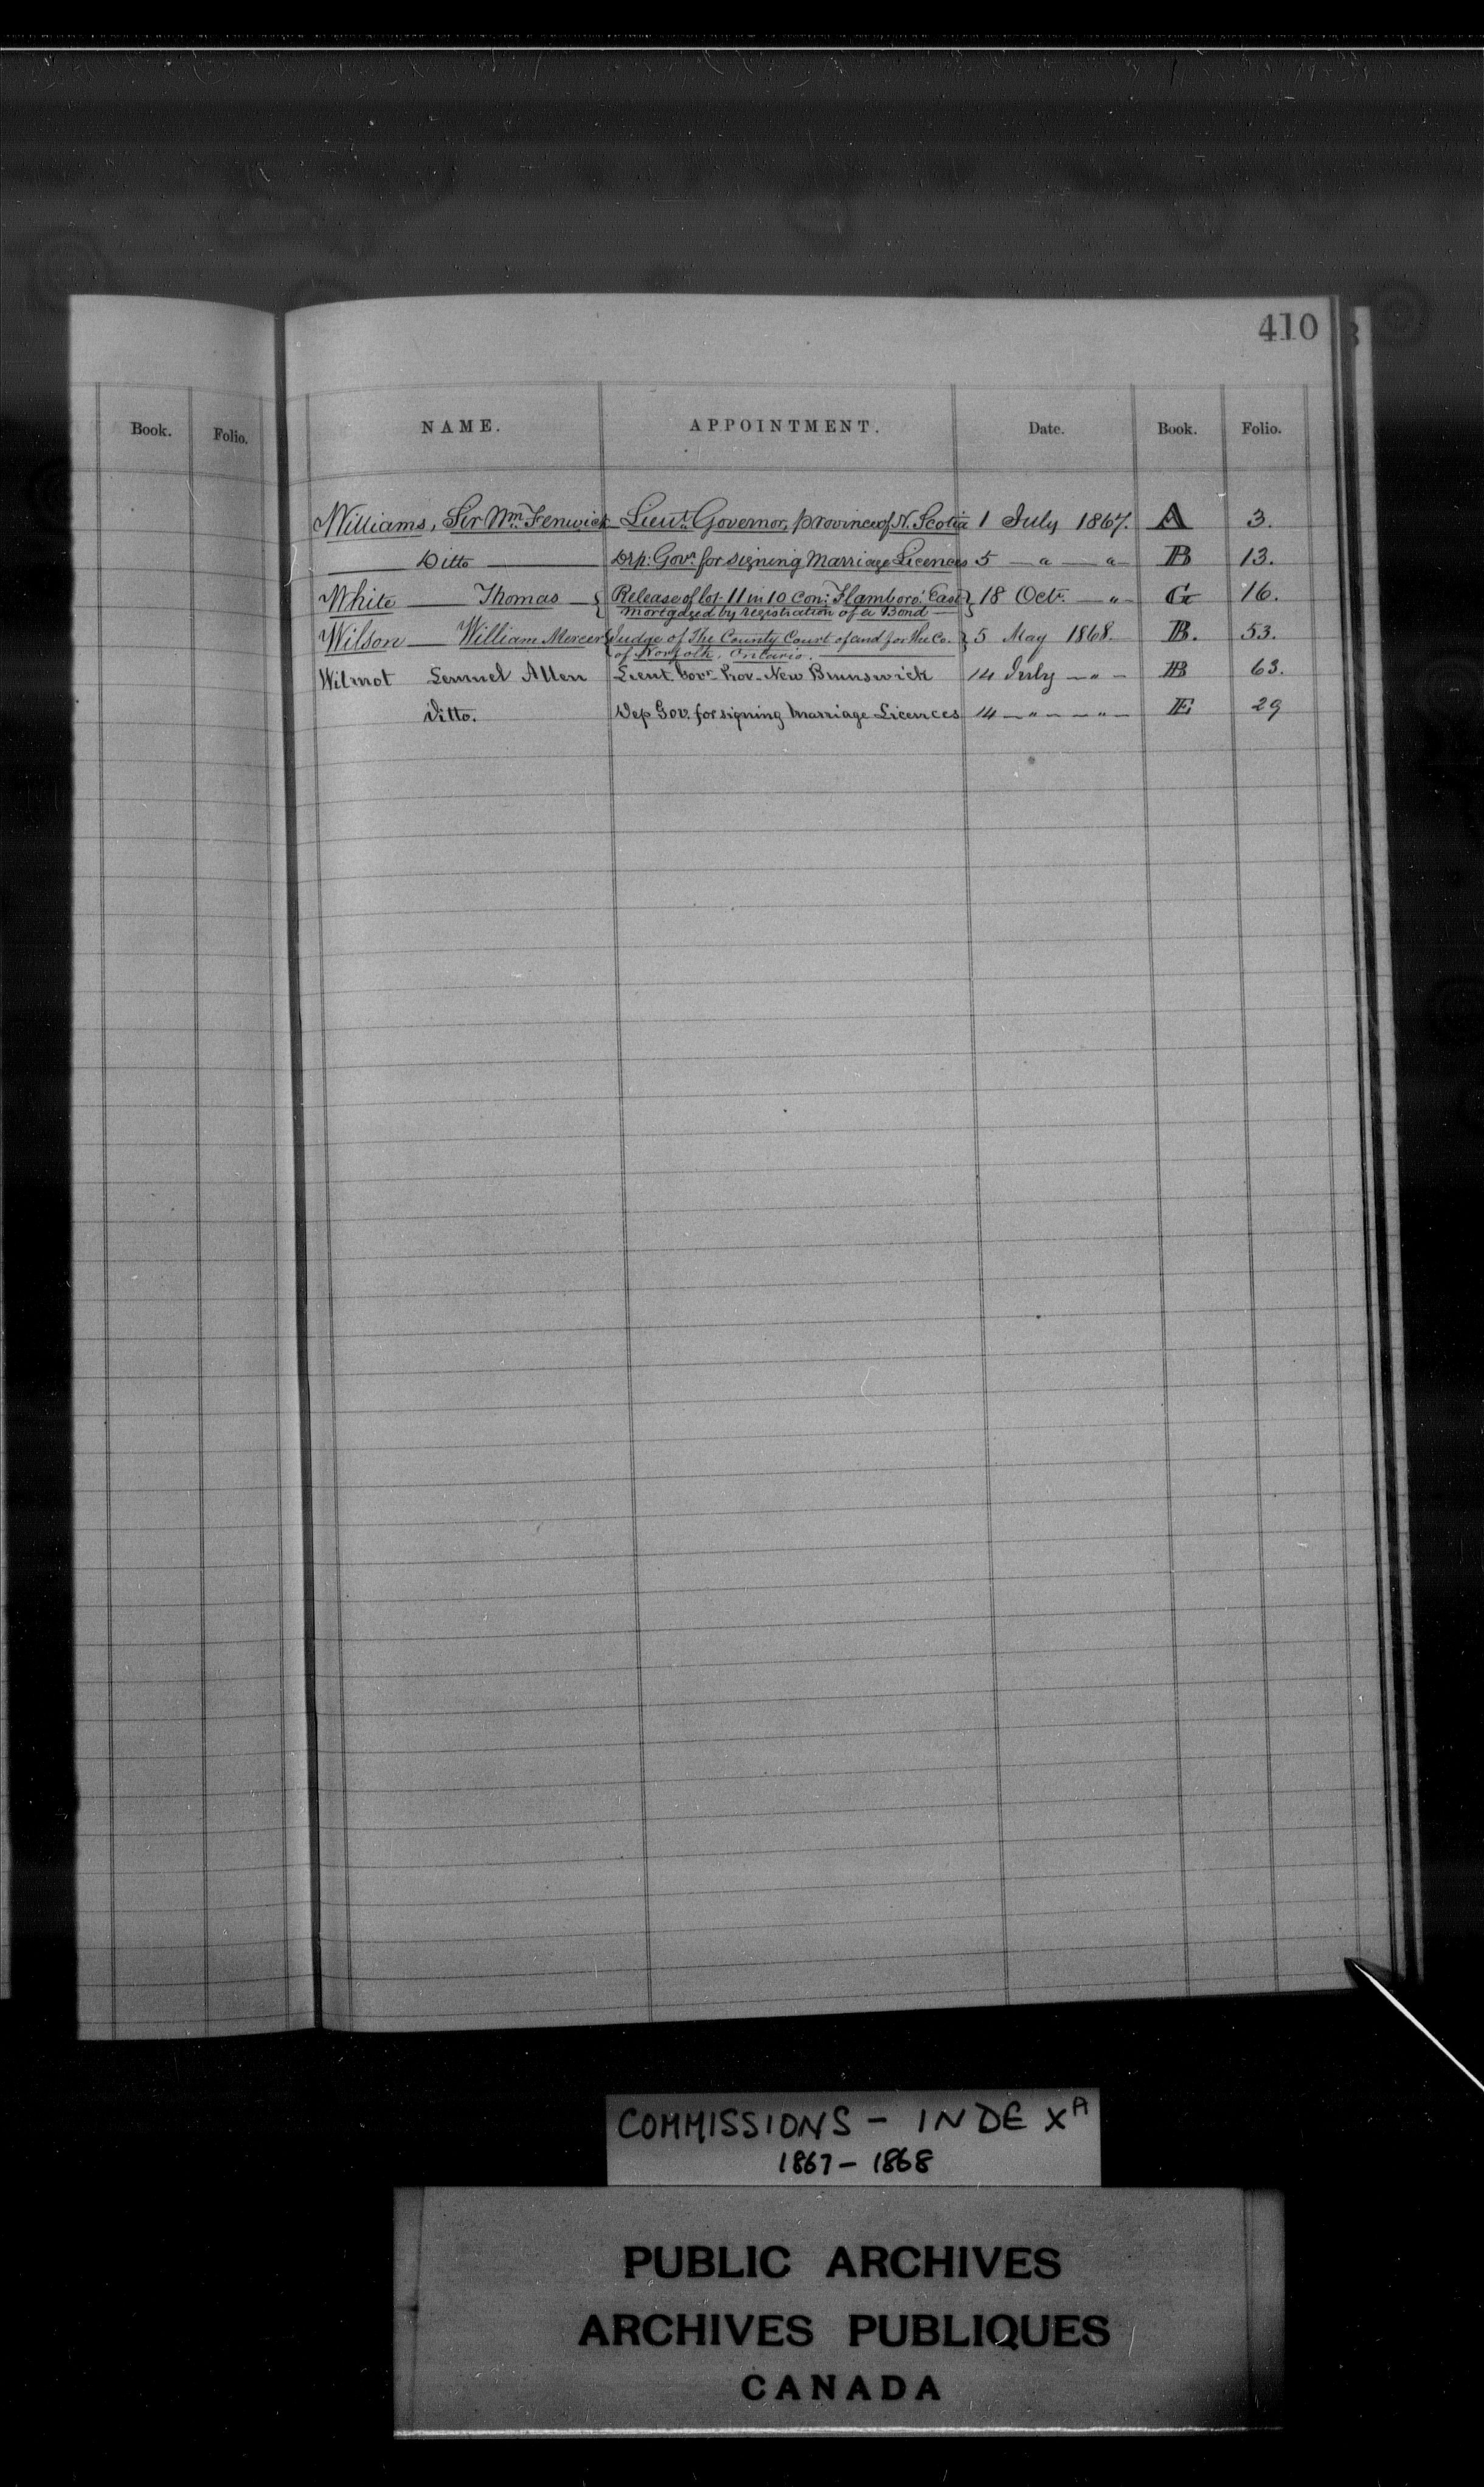 410
Book. Folio. NAME. APPOINTMENT. Date. Book. Folio.
Williams, Sir Wm. Fenwick Lieut. Governor, province of N. Scotia 1 July 1867. A 3.
Ditto Dep. Govr. for signing Marriage Licences 5 " " B 13.
White Thomas { Release of lot 11 in 10 Con: Flamboro' East } 18 Octr. " G 16.
mortgaged by registration of a Bond
Wilson William Mercer { Judge of The County Court of and for the Co. } 5 May 1868. B. 53.
of Norfolk, Ontario.
Wilmot Lemuel Allen Lieut. Govr. Prov. New Brunswick 14 July " B 63.
Ditto. Dep Gov. for signing Marriage Licences 14 " " E 29
COMMISSIONS - INDEX A
1867 - 1868
PUBLIC ARCHIVES
ARCHIVES PUBLIQUES
CANADA